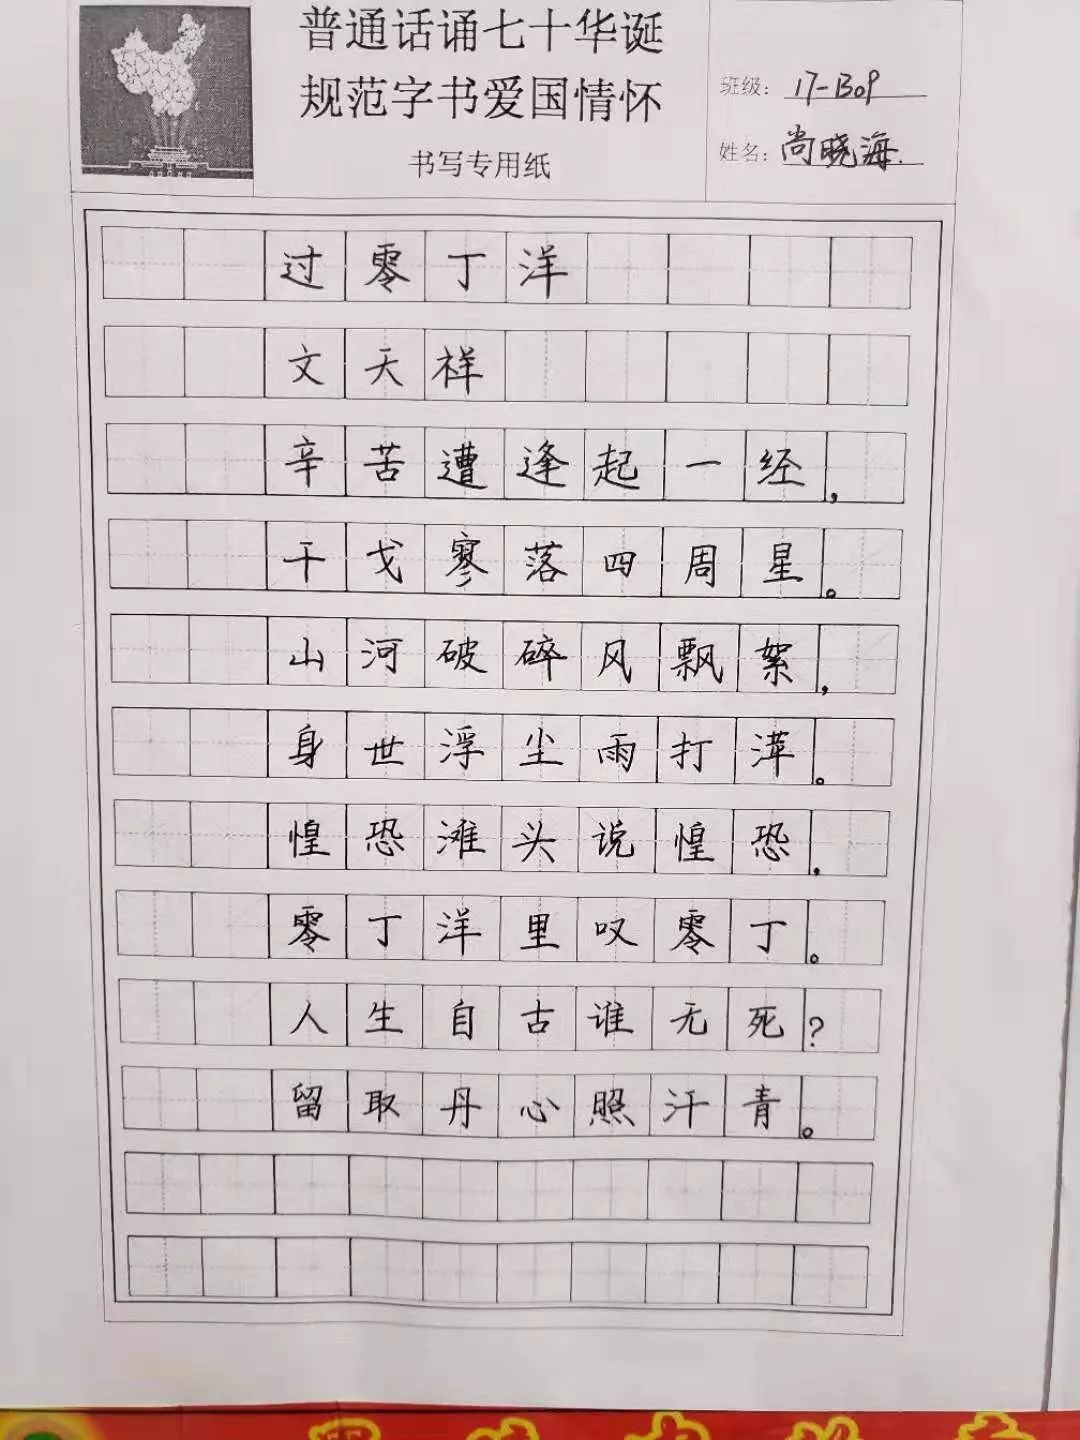 普通话诵七十华诞
规范字书爱国情怀
书写专用纸
班级：17-B09
姓名：尚晓海.
过零丁洋
文天祥
辛苦遭逢起一经，
干戈寥落四周星。
山河破碎风飘絮，
身世浮尘雨打萍。
惶恐滩头说惶恐，
零丁洋里叹零丁。
人生自古谁无死？
留取丹心照汗青。